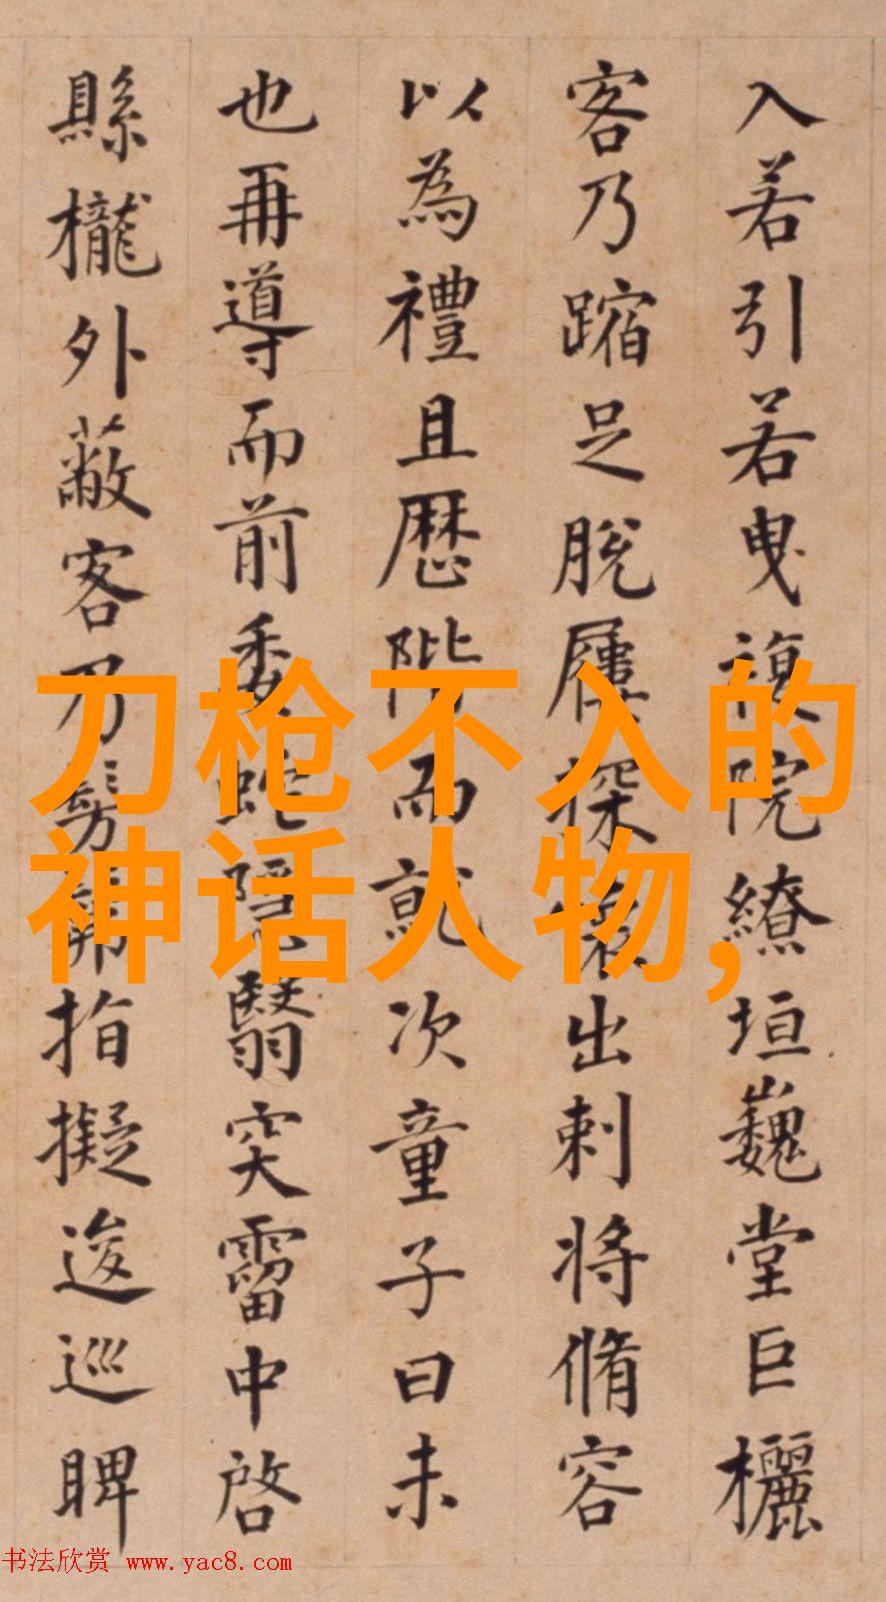 入若引若曳複院繚垣巍堂巨欐
客乃蹜足脫屨探懷出刺將脩容
以為禮且歷階而就次童子曰未
也再導而前委蛇隱翳突霤中啓
縣櫳外蔽客乃髣髴指擬逡巡睥
刀枪不入的
神话人物,
书法欣赏 www.yac8.com